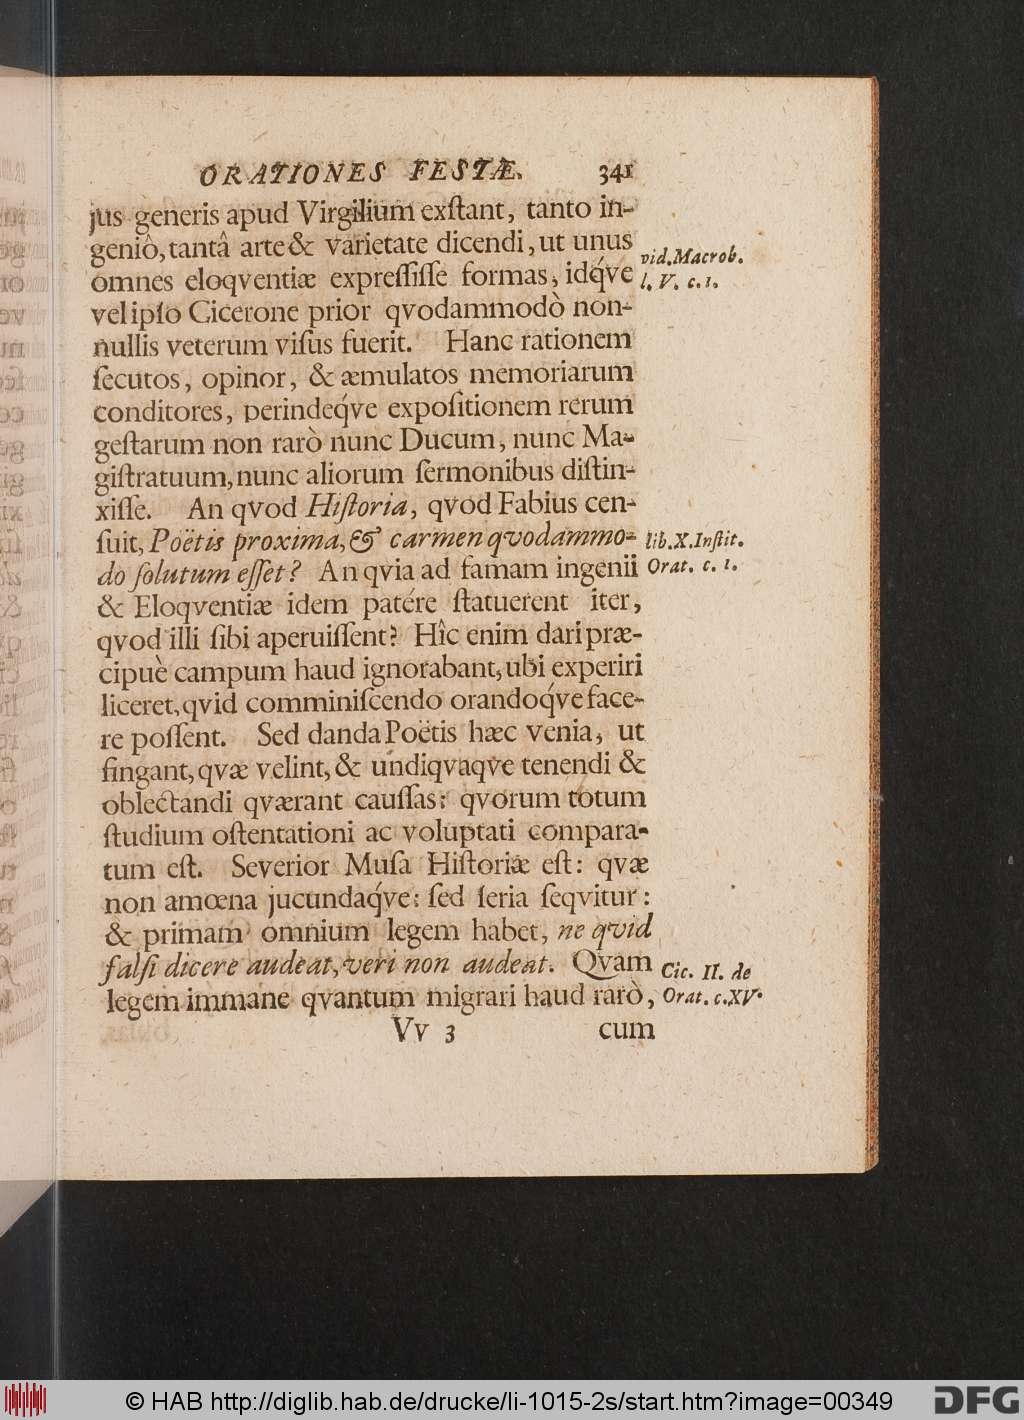 ORATIONES FESTÆ. 341
jus generis apud Virgilium exſtant, tanto in-
geniô, tantâ arte & varietate dicendi, ut unus
omnes eloqventiæ expreſſiſſe formas, idq́ve
vel ipſo Cicerone prior qvodammodò non-
nullis veterum viſus fuerit. Hanc rationem
ſecutos, opinor, & æmulatos memoriarum
conditores, perindeq́ve expoſitionem rerum
geſtarum non rarò nunc Ducum, nunc Ma-
giſtratuum, nunc aliorum ſermonibus diſtin-
xiſſe. An qvod Hiſtoria, qvod Fabius cen-
ſuit, Poëtis proxima, & carmen qvodammo-
do ſolutum eſſet? An qvia ad famam ingenii
& Eloqventiæ idem patére ſtatuerent iter,
qvod illi ſibi aperuiſſent? Hîc enim dari præ-
cipuè campum haud ignorabant, ubi experiri
liceret, qvid comminiſcendo orandoq́ve face-
re poſſent. Sed danda Poëtis hæc venia, ut
fingant, qvæ velint, & undiqvaqve tenendi &
oblectandi qværant cauſſas: qvorum totum
ſtudium oſtentationi ac voluptati compara-
tum eſt. Severior Muſa Hiſtoriæ eſt: qvæ
non amœna jucundaq́ve: ſed ſeria ſeqvitur:
& primam omnium legem habet, ne qvid
falſi dicere audeat, veri non audeat. Qvam
legem immane qvantum migrari haud rarò,
Vv 3 cum
vid. Macrob.
l. V. c. 1.
lib. X. Inſtit.
Orat. c. 1.
Cic. II. de
Orat. c. XV.
© HAB http://diglib.hab.de/drucke/li-1015-2s/start.htm?image=00349
DFG